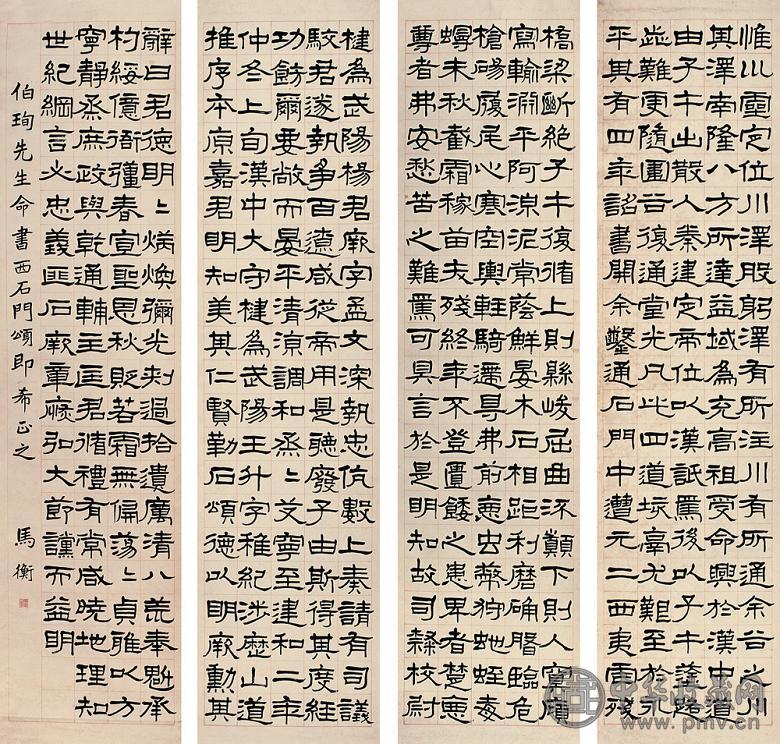 惟川靈定位川澤股躬澤有所注川有所通余谷之川
其澤南隆八方所達益域為充高祖受命興於漢中道
由子午出散入秦建定帝位以漢詆焉後以子午塗路
歮難更隨圍谷復通堂光凡此四道垓鬲尤艱至於永
平其有四年詔書開余鑿通石門中遭元二西夷虐殘
橋梁斷絕子午復循上則縣峻屈曲流顛下則入冥廎
寫輸淵平阿涼泥常蔭鮮晏木石相距利磨确磐臨危
槍碭履尾心寒空輿輕騎遰㝵弗前惡虫弊狩虵蛭毒
蟃未秋截霜稼苗夭殘終年不登匱餧之患卑者楚惡
尊者弗安愁苦之難焉可具言於是明知故司隸校尉
楗為武陽楊君厥字孟文深執忠伉數上奏請有司議
駮君遂執爭百遼咸從帝用是聽廢子由斯得其度經
功飭爾要敞而晏平清涼調和烝〻艾寧至建和二年
仲冬上旬漢中大守楗為武陽王升字稚紀涉歷山道
推序本原嘉君明知美其仁賢勒石頌德以明厥勳其
辭曰君德明〻炳煥彌光刺過拾遺厲清八荒奉魁承
杓綏億衙彊春宣聖恩秋貶若霜無偏蕩〻貞雅以方
寧靜烝庶政與乾通輔主匡君循禮有常咸曉地理知
世紀綱言必忠義匪石厥章恢弘大節讜而益明
伯珣先生命書西石門頌即希正之 馬衡
中华收藏网
www.pmv.cn